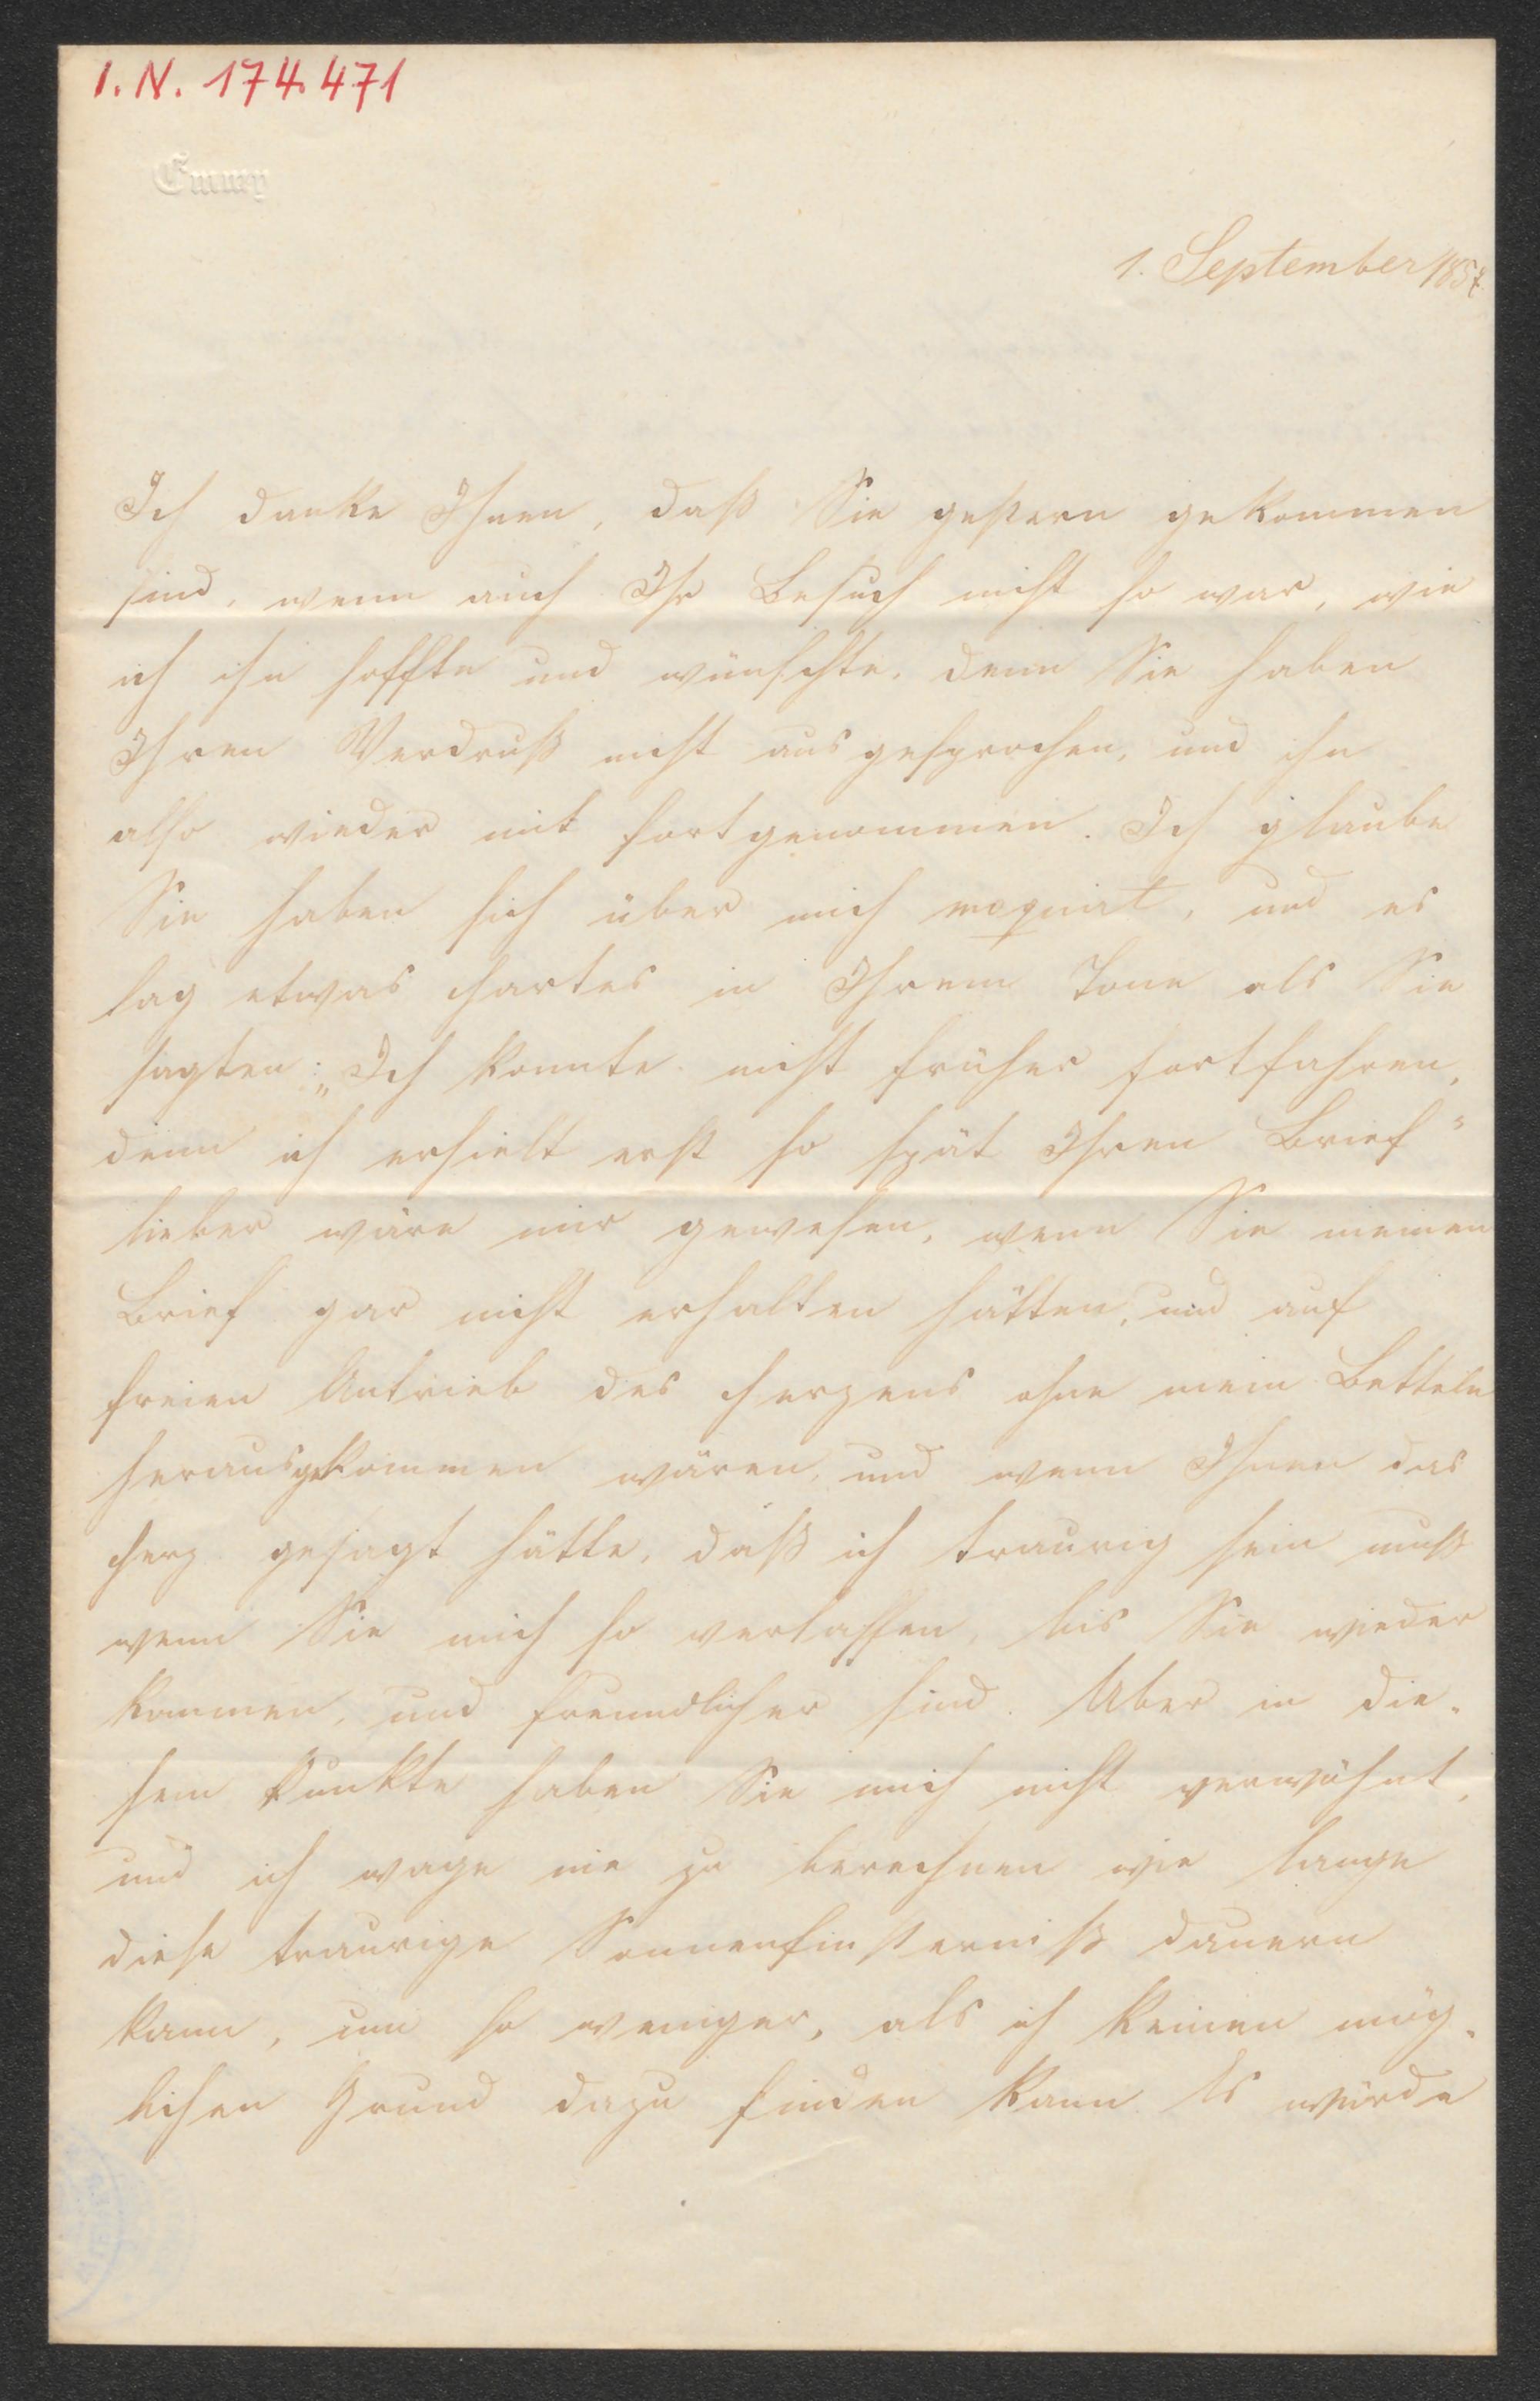 I. N. 174.471
Emmy
1. September 1857
Ich danke Ihnen, daß Sie gestern gekommen
sind, wenn auch Ihr Besuch nicht so war, wie
ich ihn hoffte und wünschte, denn Sie haben
Ihren Verdruß nicht ausgesprochen, und ihn
also wieder mit fortgenommen. Ich glaube
Sie haben sich über mich moquirt, und es
lag etwas hartes in Ihrem Tone als Sie
sagten: „Ich konnte nicht früher fortfahren,
denn ich erhielt erst so spät Ihren Brief"
lieber wäre mir gewesen, wenn Sie meinen
Brief gar nicht erhalten hätten, und auf
freien Antrieb des Herzens ohne mein Betteln
herausgekommen wären, und wenn Ihnen das
Herz gesagt hätte, daß ich traurig sein muß
wenn Sie mich so verlassen, bis Sie wieder
kommen, und freundlicher sind. Aber in die-
sem Punkte haben Sie mich nicht verwöhnt,
und ich wage nie zu berechnen wie lange
diese traurige Sonnenfinsterniß dauern
kann, um so weniger, als ich keinen mög-
lichen Grund dazu finden kann. Es würde